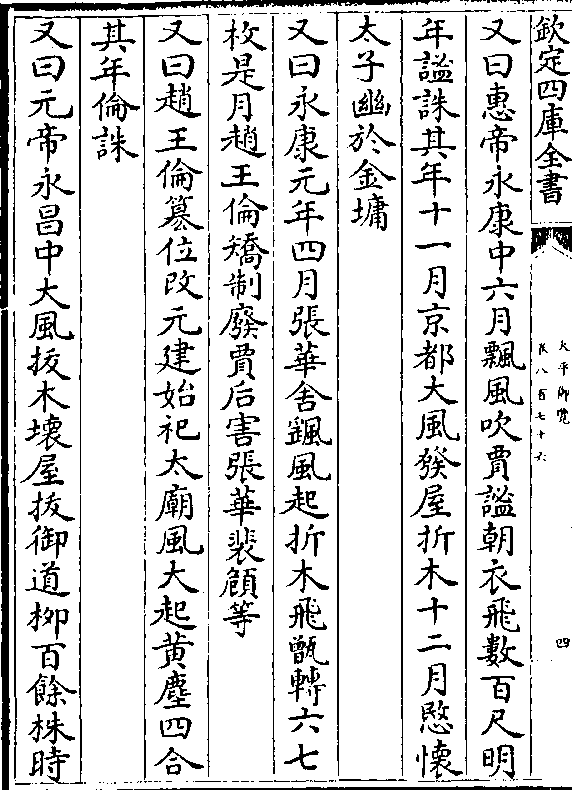 欽定四庫全書
太平御覽
卷八百七十六
四
又曰惠帝永康中六月飄風吹賈謐朝衣飛數百尺明
年謐誅其年十一月京都大風發屋折木十二月愍懷
太子幽於金墉
又曰永康元年四月張華舍飄風起折木飛甑轉六七
枚是月趙王倫矯制廢賈后害張華裴頠等
又曰趙王倫簒位改元建始祀太廟風大起黄塵四合
其年倫誅
又曰元帝永昌中大風拔木壊屋拔御道栁百餘株時